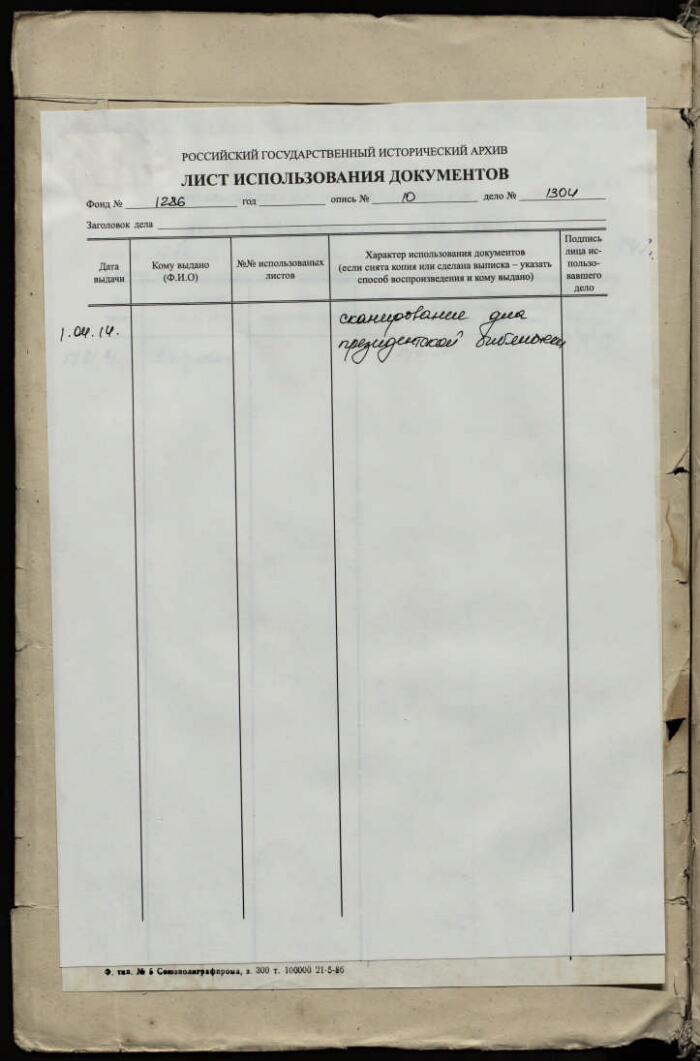 РОССИЙСКИЙ ГОСУДАРСТВЕННЫЙ ИСТОРИЧЕСКИЙ АРХИВ
ЛИСТ ИСПОЛЬЗОВАНИЯ ДОКУМЕНТОВ
Фонд № 1286 год опись № 10 дело № 1304
Заголовок дела
Дата
выдачи
Кому выдано
(Ф.И.О)
№№ использованых
листов
Характер использования документов
(если снята копия или сделана выписка – указать
способ воспроизведения и кому выдано)
Подпись
лица ис-
пользо-
вавшего
дело
1.04.14.
сканирование для
президентской библиотеки
Ф. тип. № 6 Союзполиграфпрома, з. 300 т. 100000 21-5-86